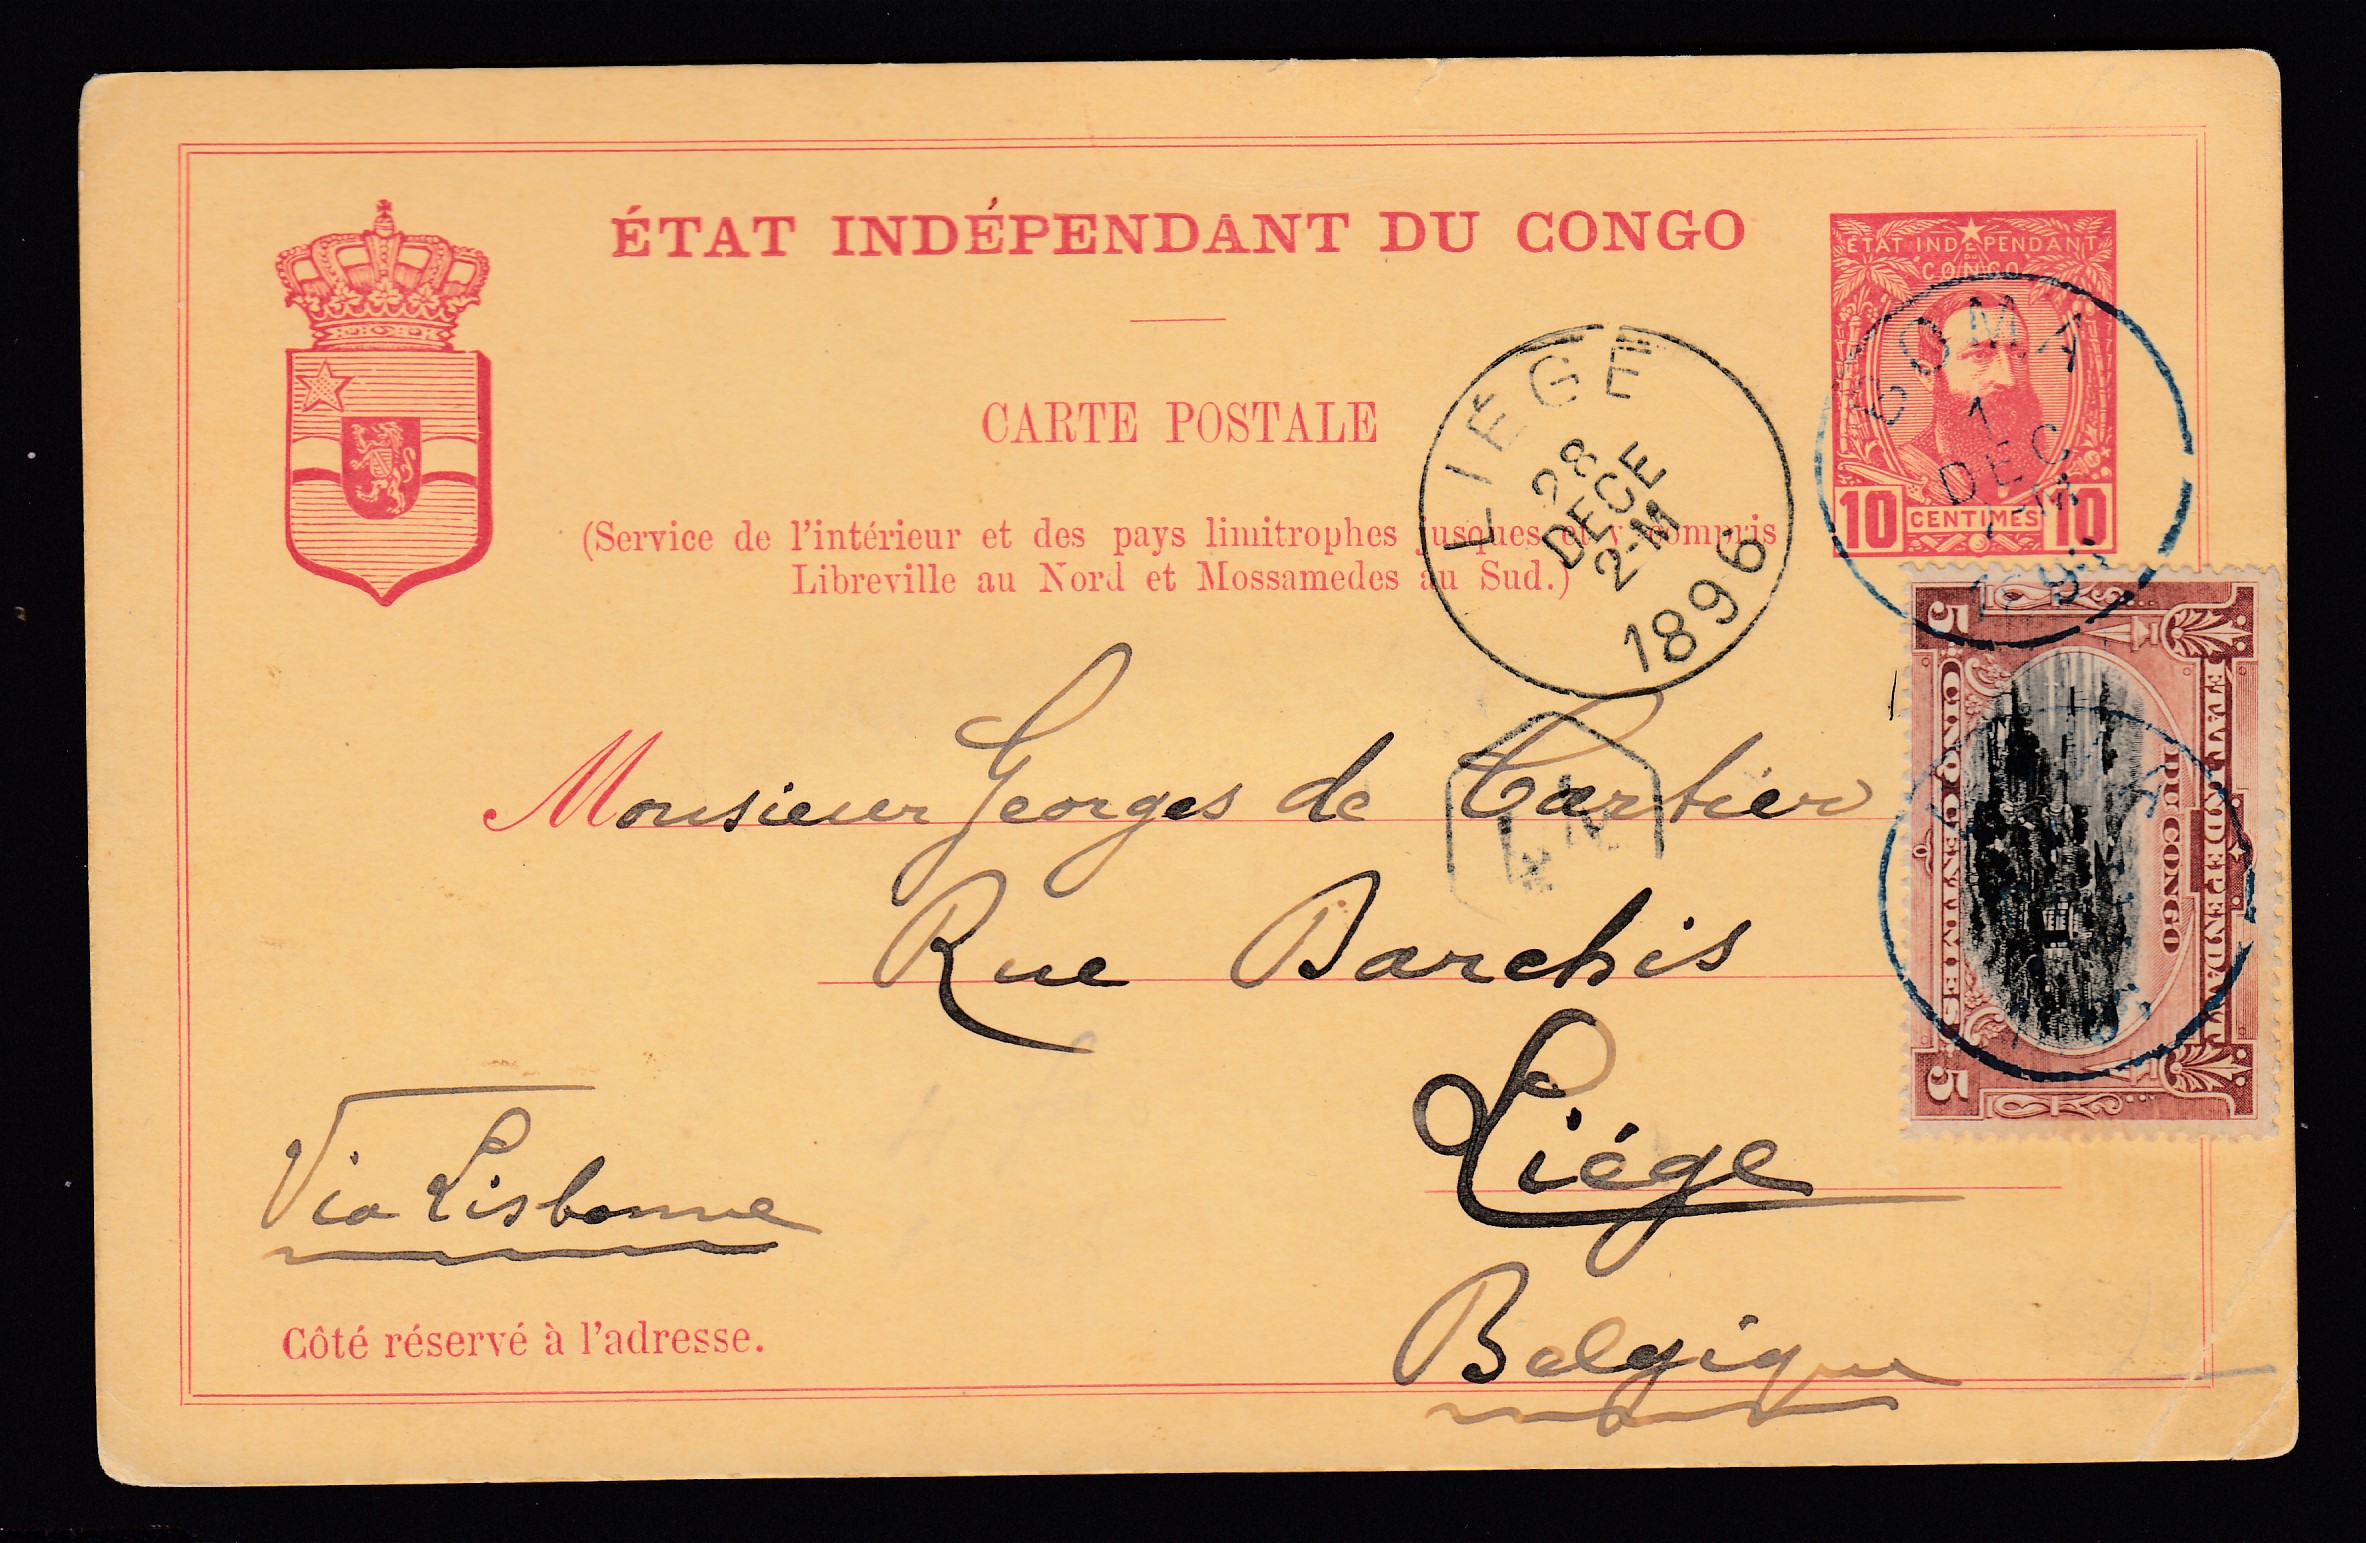 ÉTAT INDÉPENDANT DU CONGO
CARTE POSTALE
(Service de l'intérieur et des pays limitrophes jusques et y compris
Libreville au Nord et Mossamedes au Sud.)
ÉTAT INDÉPENDANT
DU
CONGO
10 CENTIMES 10
BOMA
1
DEC
7-M
LIÉGE
28
DECE
2-M
1896
ETAT INDEPENDANT
DU CONGO
5 CINQ CENTIMES 5
Monsieur Georges de Cartier
Rue Darchis
Liége
Belgique
Via Lisbonne
Côté réservé à l'adresse.